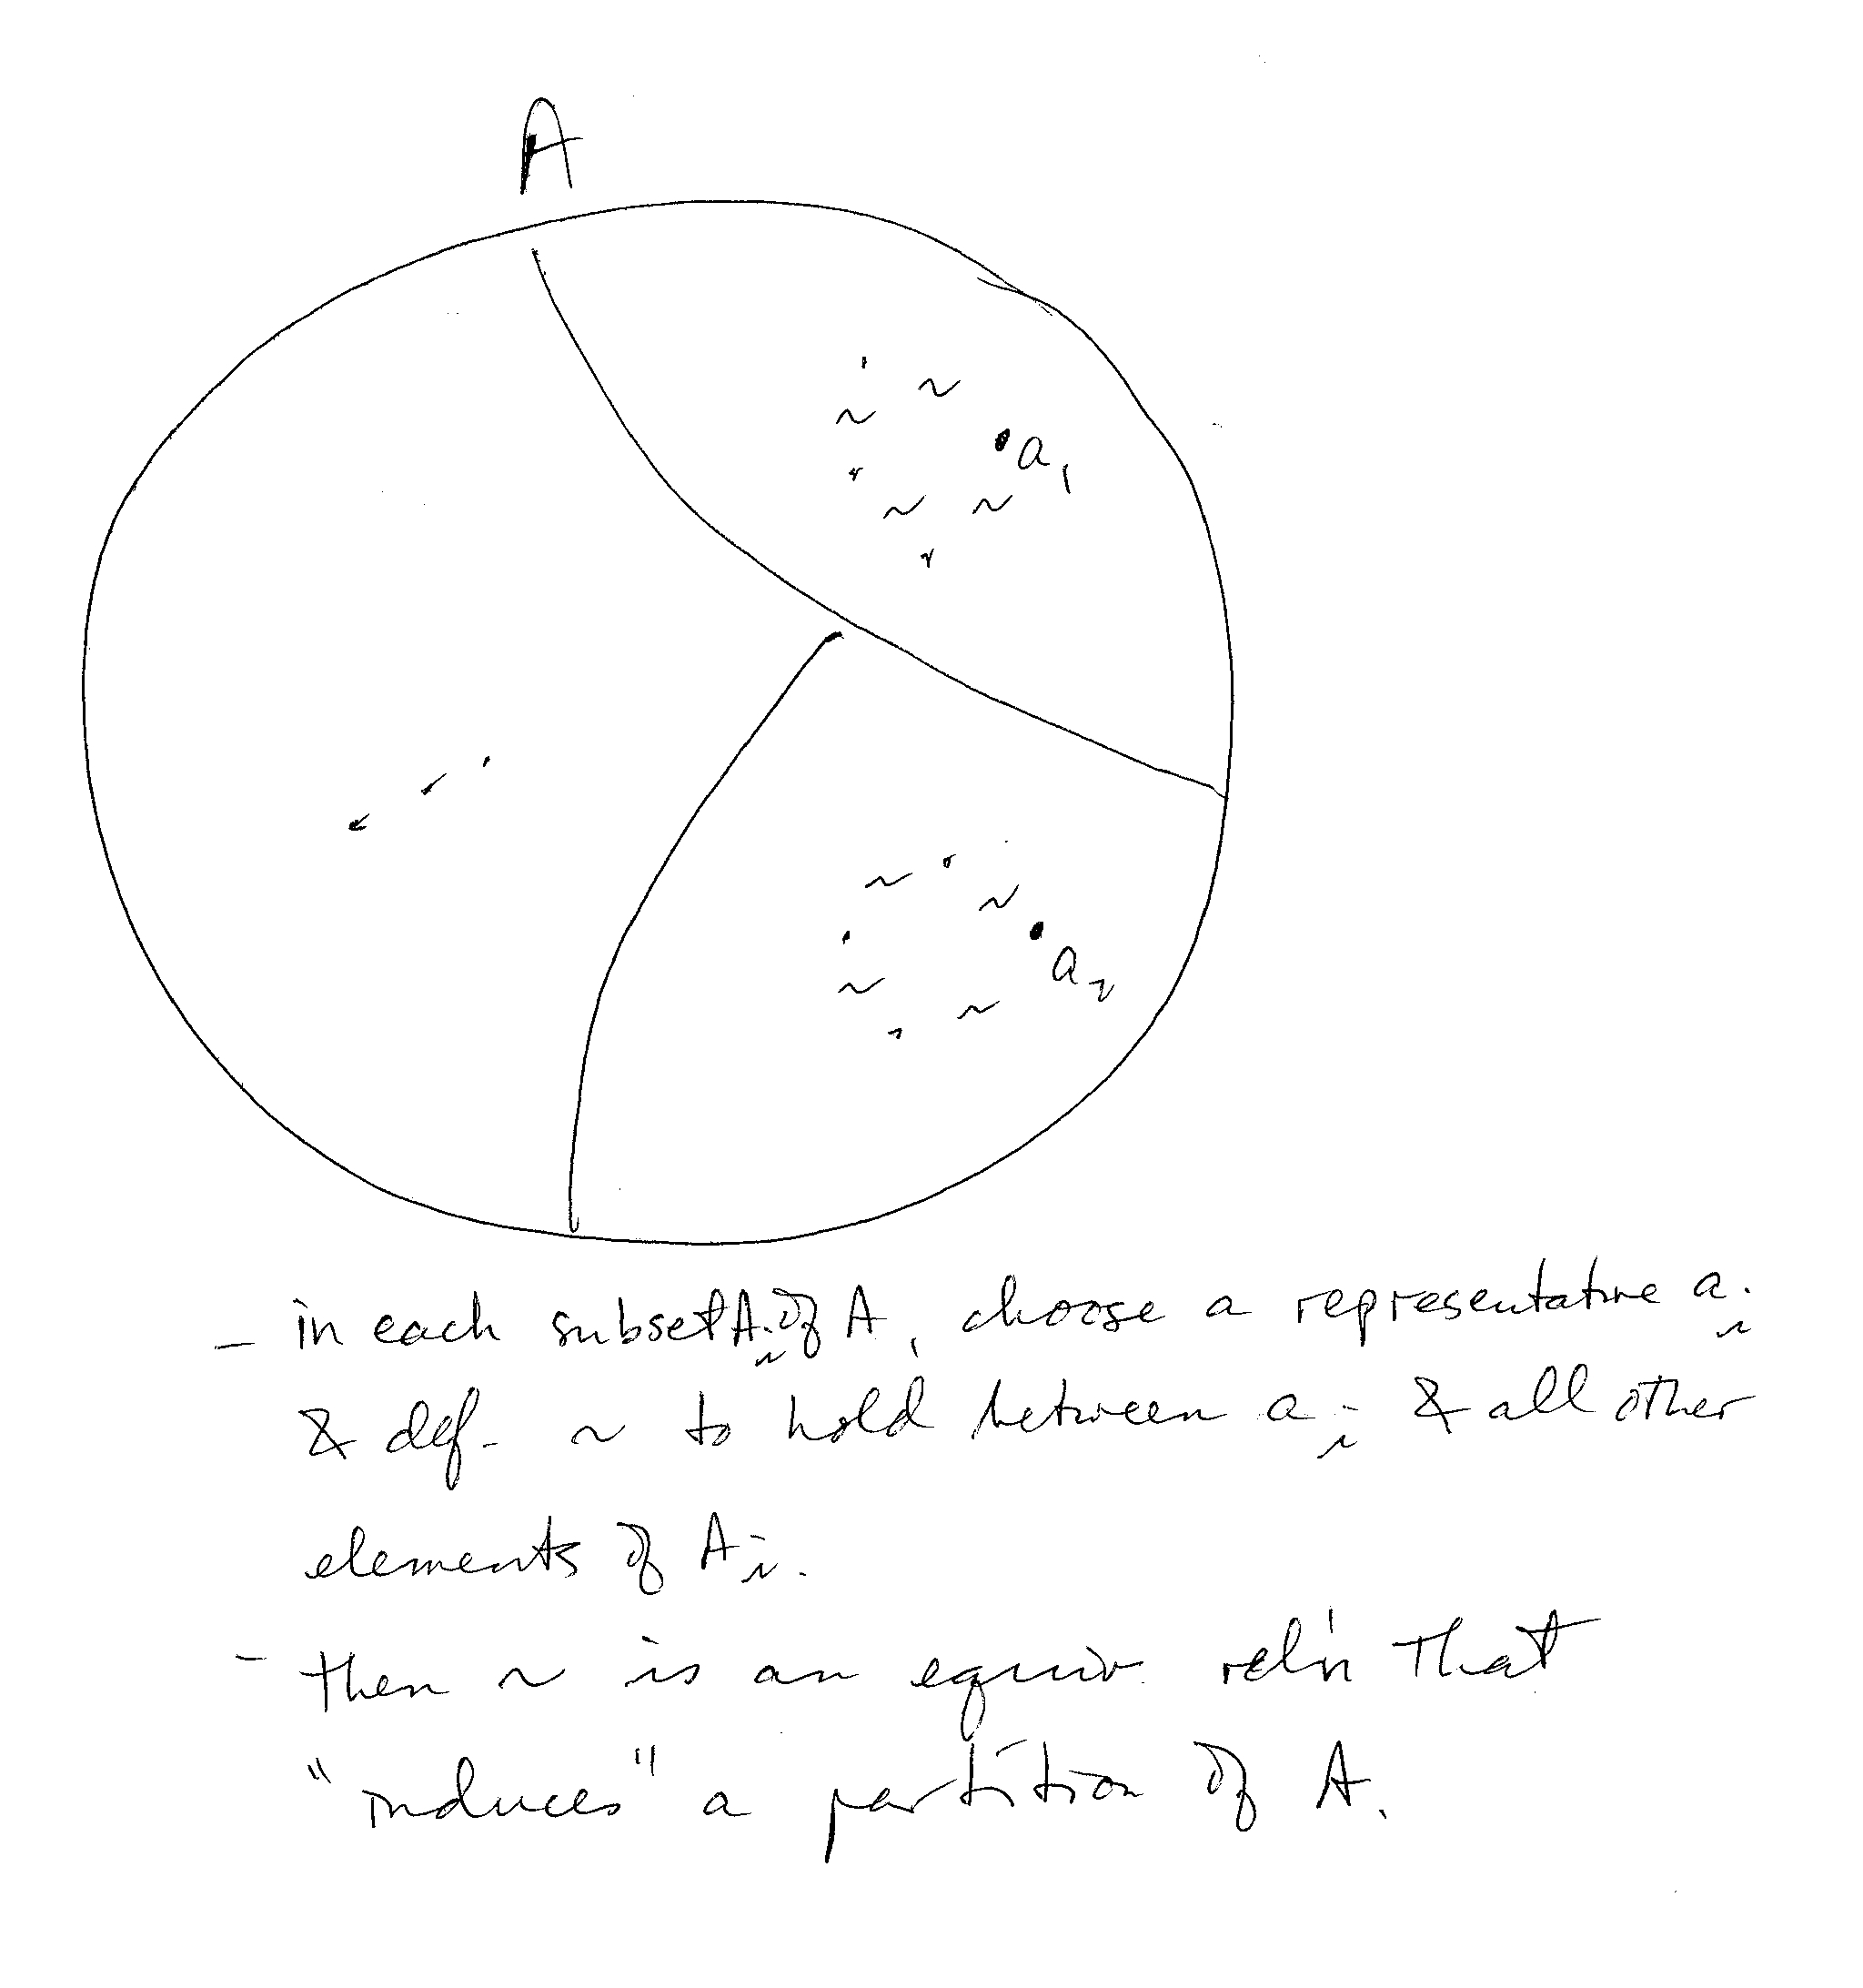 A
~
~
a₁
~ ~
~
~
a₂
~
~
- in each subset Aᵢ of A, choose a representative aᵢ
& def. ~ to hold between aᵢ & all other
elements of Aᵢ.
- then ~ is an equiv. rel'n that
"induces" a partition of A.